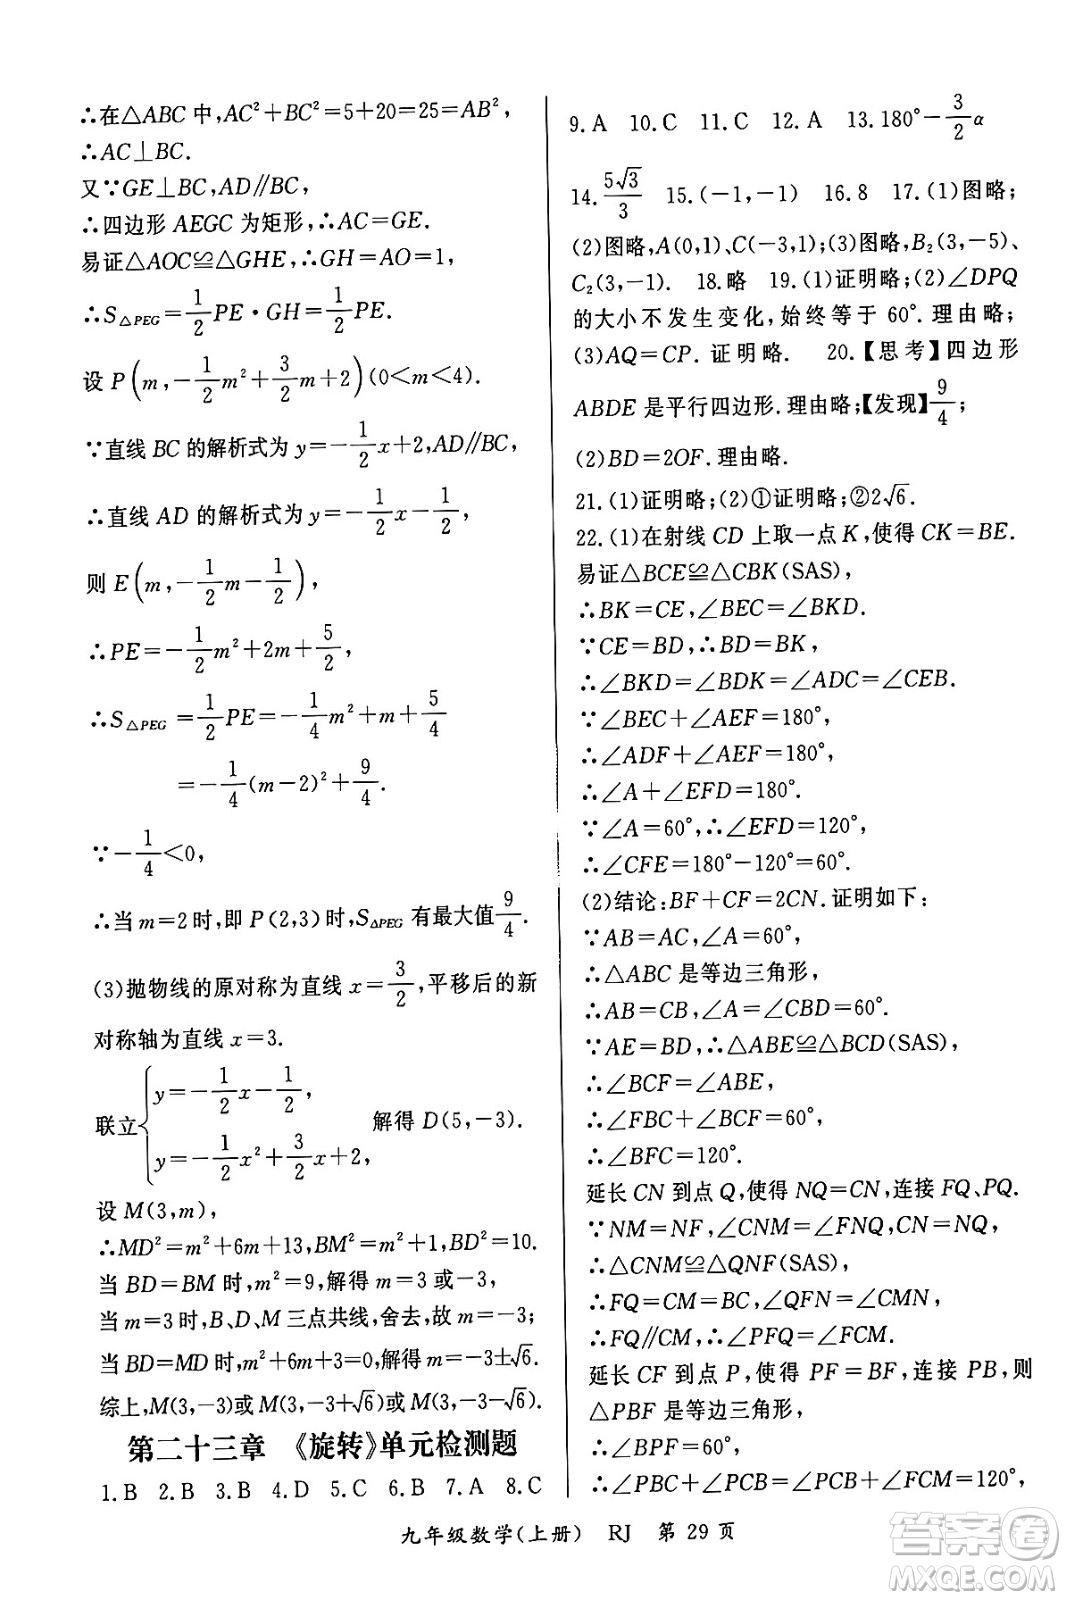 ∴在△ABC 中,AC²+BC²=5+20=25=AB²,
∴AC⊥BC.
又∵GE⊥BC,AD∥BC,
∴四边形 AEGC 为矩形,∴AC=GE.
易证△AOC≌△GHE,∴GH=AO=1,
∴S△PEG=1/2PE·GH=1/2PE.
设 P(m,-1/2m²+3/2m+2)(0<m<4).
∵直线 BC 的解析式为 y=-1/2x+2,AD∥BC,
∴直线 AD 的解析式为 y=-1/2x-1/2,
则 E(m,-1/2m-1/2),
∴PE=-1/2m²+2m+5/2,
∴S△PEG=1/2PE=-1/4m²+m+5/4
=-1/4(m-2)²+9/4.
∵-1/4<0,
∴当 m=2 时,即 P(2,3)时,S△PEG 有最大值9/4.
(3)抛物线的原对称为直线 x=3/2,平移后的新
对称轴为直线 x=3.
联立{y=-1/2x-1/2, y=-1/2x²+3/2x+2, 解得 D(5,-3).
设 M(3,m),
∴MD²=m²+6m+13,BM²=m²+1,BD²=10.
当 BD=BM 时,m²=9,解得 m=3 或 m=-3,
当 m=3 时,B、D、M 三点共线,舍去,故 m=-3;
当 BD=MD 时,m²+6m+3=0,解得 m=-3±√6.
综上,M(3,-3)或 M(3,-3+√6)或 M(3,-3-√6).
第二十三章 《旋转》单元检测题
1.B 2.B 3.B 4.D 5.C 6.B 7.A 8.C
9.A 10.C 11.C 12.A 13.180°-3/2α
14.5√3/3 15.(-1,-1) 16.8 17.(1)图略;
(2)图略,A(0,1)、C(-3,1);(3)图略,B₂(3,-5)、
C₂(3,-1). 18.略 19.(1)证明略;(2)∠DPQ
的大小不发生变化,始终等于 60°.理由略;
(3)AQ=CP.证明略. 20.【思考】四边形
ABDE 是平行四边形.理由略;【发现】9/4;
(2)BD=2OF.理由略.
21.(1)证明略;(2)①证明略;②2√6.
22.(1)在射线 CD 上取一点 K,使得 CK=BE.
易证△BCE≌△CBK(SAS),
∴BK=CE,∠BEC=∠BKD.
∵CE=BD,∴BD=BK,
∴∠BKD=∠BDK=∠ADC=∠CEB.
∵∠BEC+∠AEF=180°,
∴∠ADF+∠AEF=180°,
∴∠A+∠EFD=180°.
∵∠A=60°,∴∠EFD=120°,
∴∠CFE=180°-120°=60°.
(2)结论:BF+CF=2CN.证明如下:
∵AB=AC,∠A=60°,
∴△ABC 是等边三角形,
∴AB=CB,∠A=∠CBD=60°.
∵AE=BD,∴△ABE≌△BCD(SAS),
∴∠BCF=∠ABE,
∴∠FBC+∠BCF=60°,
∴∠BFC=120°.
延长 CN 到点 Q,使得 NQ=CN,连接 FQ、PQ.
∵NM=NF,∠CNM=∠FNQ,CN=NQ,
∴△CNM≌△QNF(SAS),
∴FQ=CM=BC,∠QFN=∠CMN,
∴FQ∥CM,∴∠PFQ=∠FCM.
延长 CF 到点 P,使得 PF=BF,连接 PB,则
△PBF 是等边三角形,
∴∠BPF=60°,
∴∠PBC+∠PCB=∠PCB+∠FCM=120°,
九年级数学(上册) RJ 第 29 页
答案圈
MXQE.COM